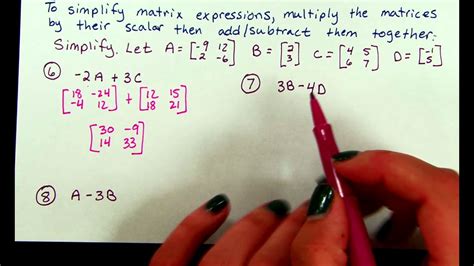 To simplify matrix expressions, multiply the matrices
by their scalar then add/subtract them together:
Simplify. Let A = [-9 12; 2 -6] B = [2; 3] C = [4 5; 6 7] D = [-1; 5]
⑥ -2A + 3C
[18 -24; -4 12] + [12 15; 18 21]
[30 -9; 14 33]
⑦ 3B - 4D
⑧ A - 3B